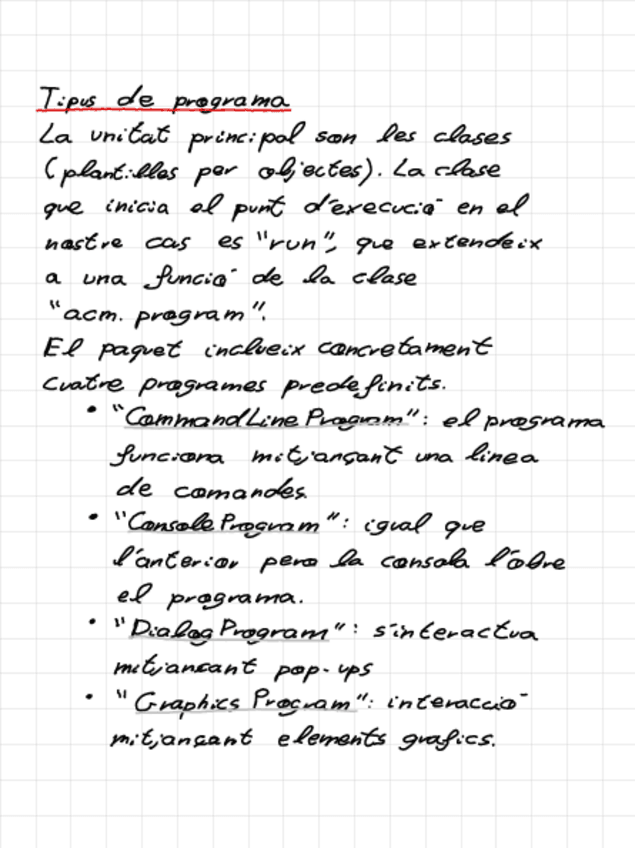 Tipus de programa
La unitat principal son les clases
(plantilles per objectes). La clase
que inicia el punt d'execució en el
nostre cas es "run", que extendeix
a una funció de la clase
"acm. program".
El paquet inclueix concretament
cuatre programes predefinits.
• "CommandLine Program": el programa
funciona mitjançant una linea
de comandes.
• "Console Program": igual que
l'anterior pero la consola l'obre
el programa.
• "Dialog Program": s'interactua
mitjansant pop-ups
• "Graphics Program": interacció
mitjançant elements grafics.